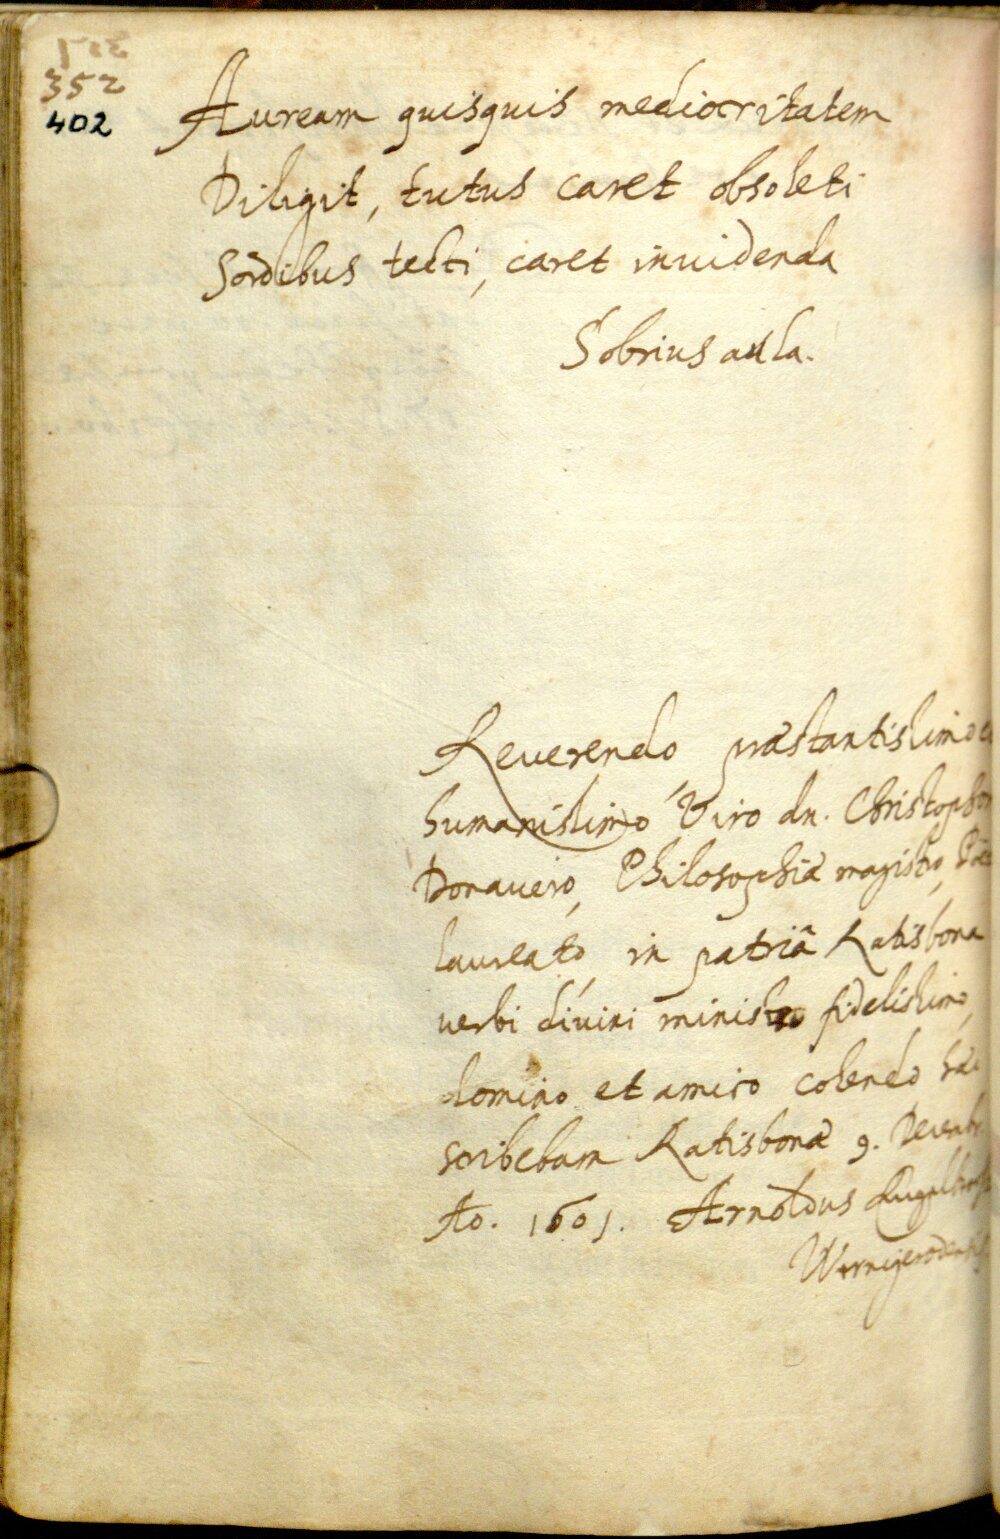 352
402
Auream quisquis mediocritatem
Diligit, tutus caret obsoleti
Sordibus tecti, caret invidenda
Sobrius aula.
Reverendo præstantissimo
humanissimo Viro dn. Christophoro
Donauero, Philosophiæ magistro,
laureato, in patriâ Ratisbona
verbi divini ministro fidelissimo,
domino et amico colendo
scribebam Ratisbonæ 9. Decembr.
Ao. 1601. Arnoldus
Wernigerodensis